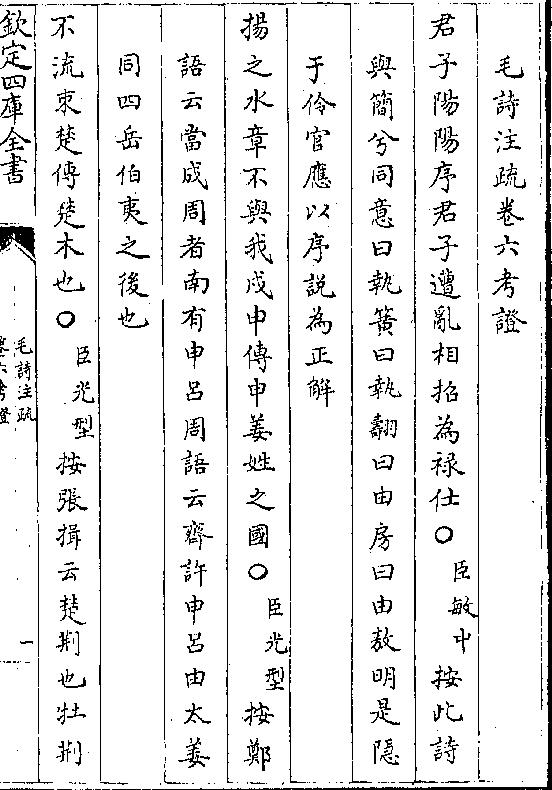 毛詩注疏卷六考證
君子陽陽序君子遭亂相招為祿仕○臣敏中按此詩
與簡兮同意曰執簧曰執翿曰由房曰由敖明是隱
于伶官應以序說為正解
揚之水章不與我戍申傳申姜姓之國○臣光型按鄭
語云當成周者南有申呂周語云齊許申呂由太姜
同四岳伯夷之後也
不流束楚傳楚木也○臣光型按張揖云楚荆也牡荆
欽定四庫全書
毛詩注疏
卷六考證
一